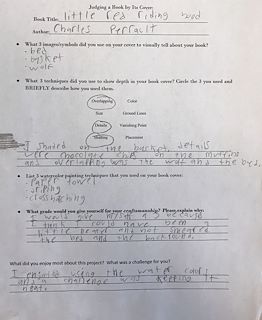 Judging a Book by Its Cover:
Book Title: little red riding hood
Author: Charles Perrault
• What 3 images/symbols did you use on your cover to visually tell about your book?
- bed
- basket
- wolf
• What 3 techniques did you use to show depth in your book cover? Circle the 3 you used and
BRIEFLY describe how you used them.
Overlapping Color
Size Ground Lines
Details Vanishing Point
Shading Placement
I shaded on the basket, details
were chocolate chip on the muffins
and overlapping was the wolf and the bed.
• List 3 watercolor painting techniques that you used on your book cover:
- Paper towel
-
- crosshatching
• What grade would you give yourself for your craftsmanship? Please explain why:
I would give myself a 3 because
I think I have been
little neater and not smeared
the bed and the background.
What did you enjoy most about this project? What was a challenge for you?
I enjoyed using the water color
and a challenge was keeping it
neat.